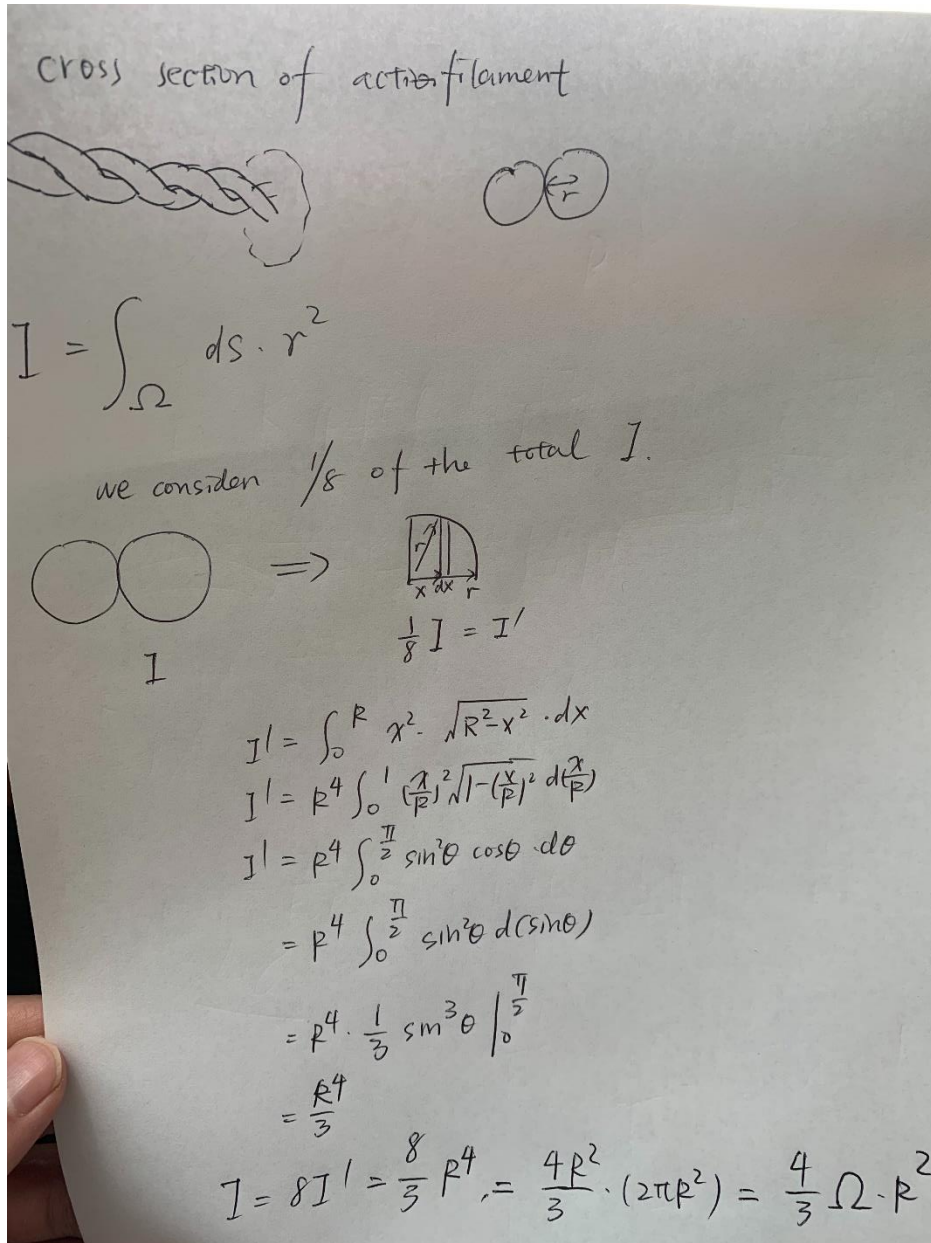 cross section of actin filament
r
I = ∫_Ω ds · r²
we consider 1/8 of the total I.
⇒
r
x dx r
I
1/8 I = I′
I′ = ∫₀^R x² · √(R²−x²) · dx
I′ = R⁴ ∫₀¹ (x/R)² √(1−(x/R)²) d(x/R)
I′ = R⁴ ∫₀^(π/2) sin²θ cosθ · dθ
= R⁴ ∫₀^(π/2) sin²θ d(sinθ)
= R⁴ · 1/3 sin³θ |₀^(π/2)
= R⁴/3
I = 8I′ = 8/3 R⁴, = 4R²/3 · (2πR²) = 4/3 Ω · R²